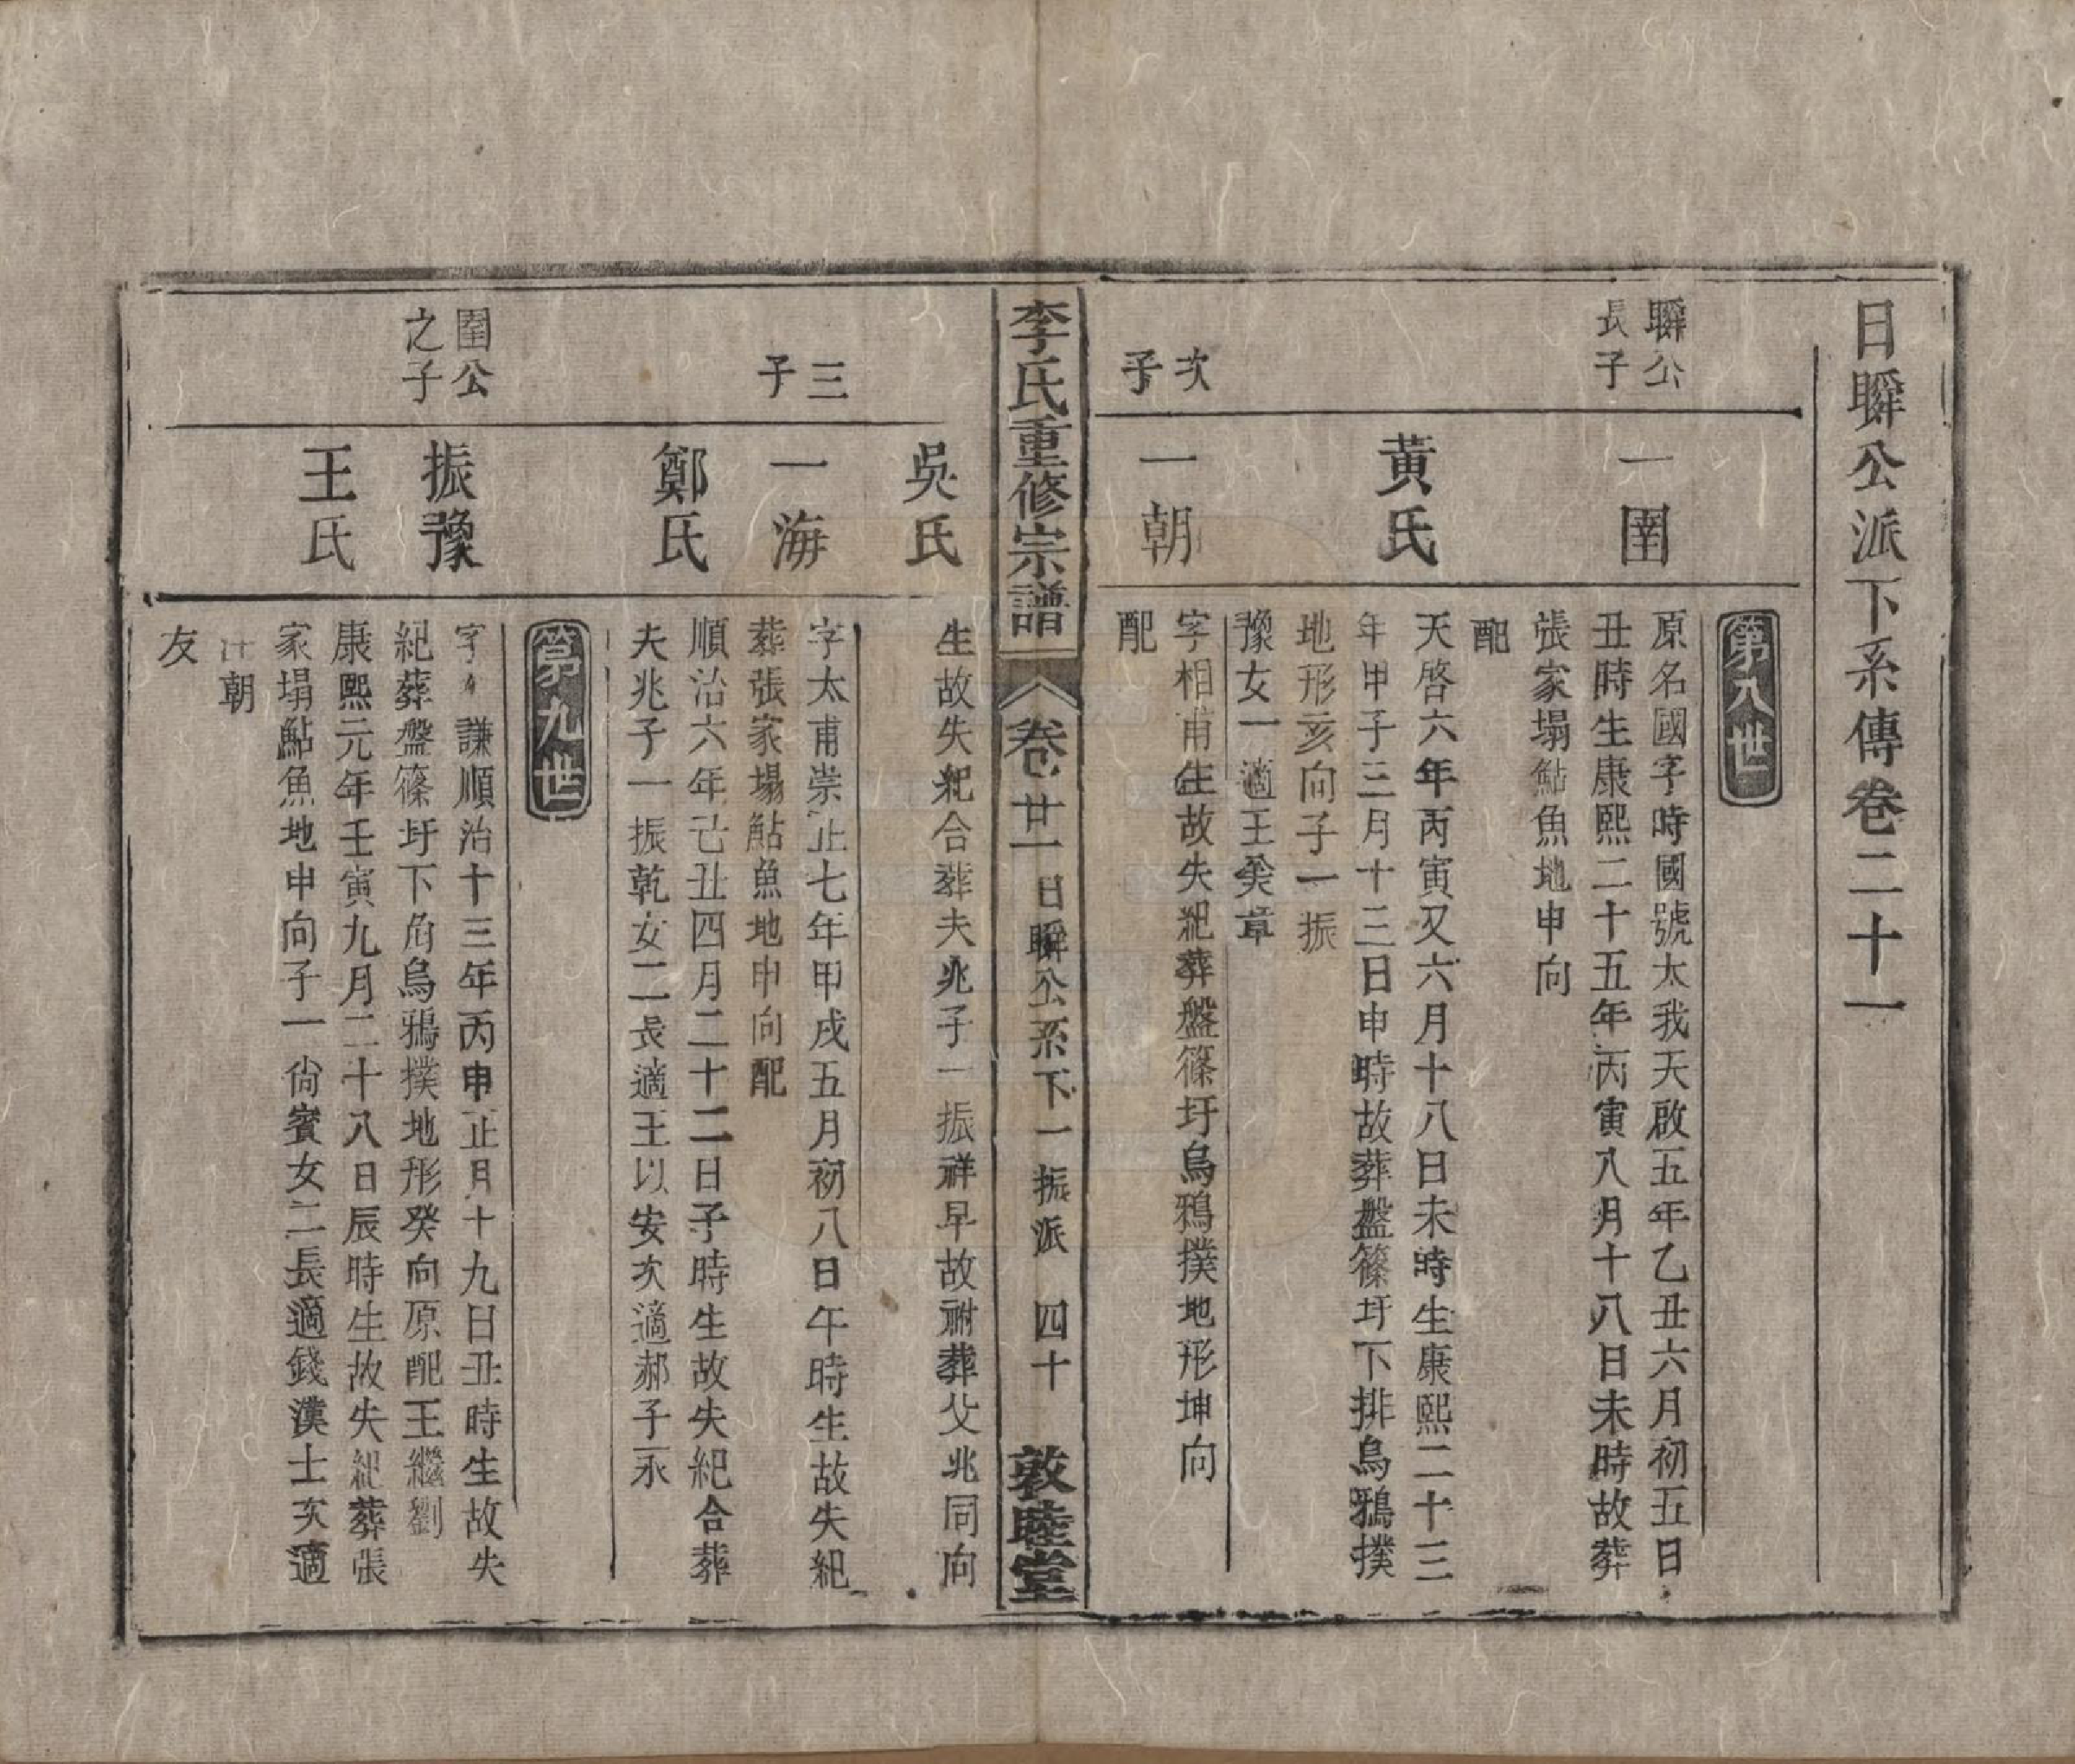 日瞬公派下系傳卷二十一
第八世
瞬公
長子
一圉
原名國字時國號太我天啟五年乙丑六月初五日
丑時生康熙二十五年丙寅八月十八日未時故葬
張家塌鮎魚地申向
配
黃氏
天啓六年丙寅又六月十八日未時生康熙二十三
年甲子三月十三日申時故葬盤篠圩下排烏鴉撲
地形亥向子一振
豫女一適王癸章
次
子
一朝
字相甫生故失紀葬盤篠圩烏鴉撲地形坤向
配
李氏重修宗譜
卷廿一
日瞬公系下一振派
四十
敦睦堂
吳氏
生故失紀合葬夫兆子一振祥早故祔葬父兆同向
三
子
一海
字太甫崇正七年甲戌五月初八日午時生故失紀
葬張家塌鮎魚地申向配
鄭氏
順治六年己丑四月二十二日子時生故失紀合葬
夫兆子一振乾女二長適王以安次適郝子永
第九世
圉公
之子
振豫
字謙順治十三年丙申正月十九日丑時生故失
紀葬盤篠圩下角烏鴉撲地形癸向原配王繼劉
王氏
康熙元年壬寅九月二十八日辰時生故失紀葬張
家塌鮎魚地申向子一尙賓女二長適錢漢士次適
汪朝
友